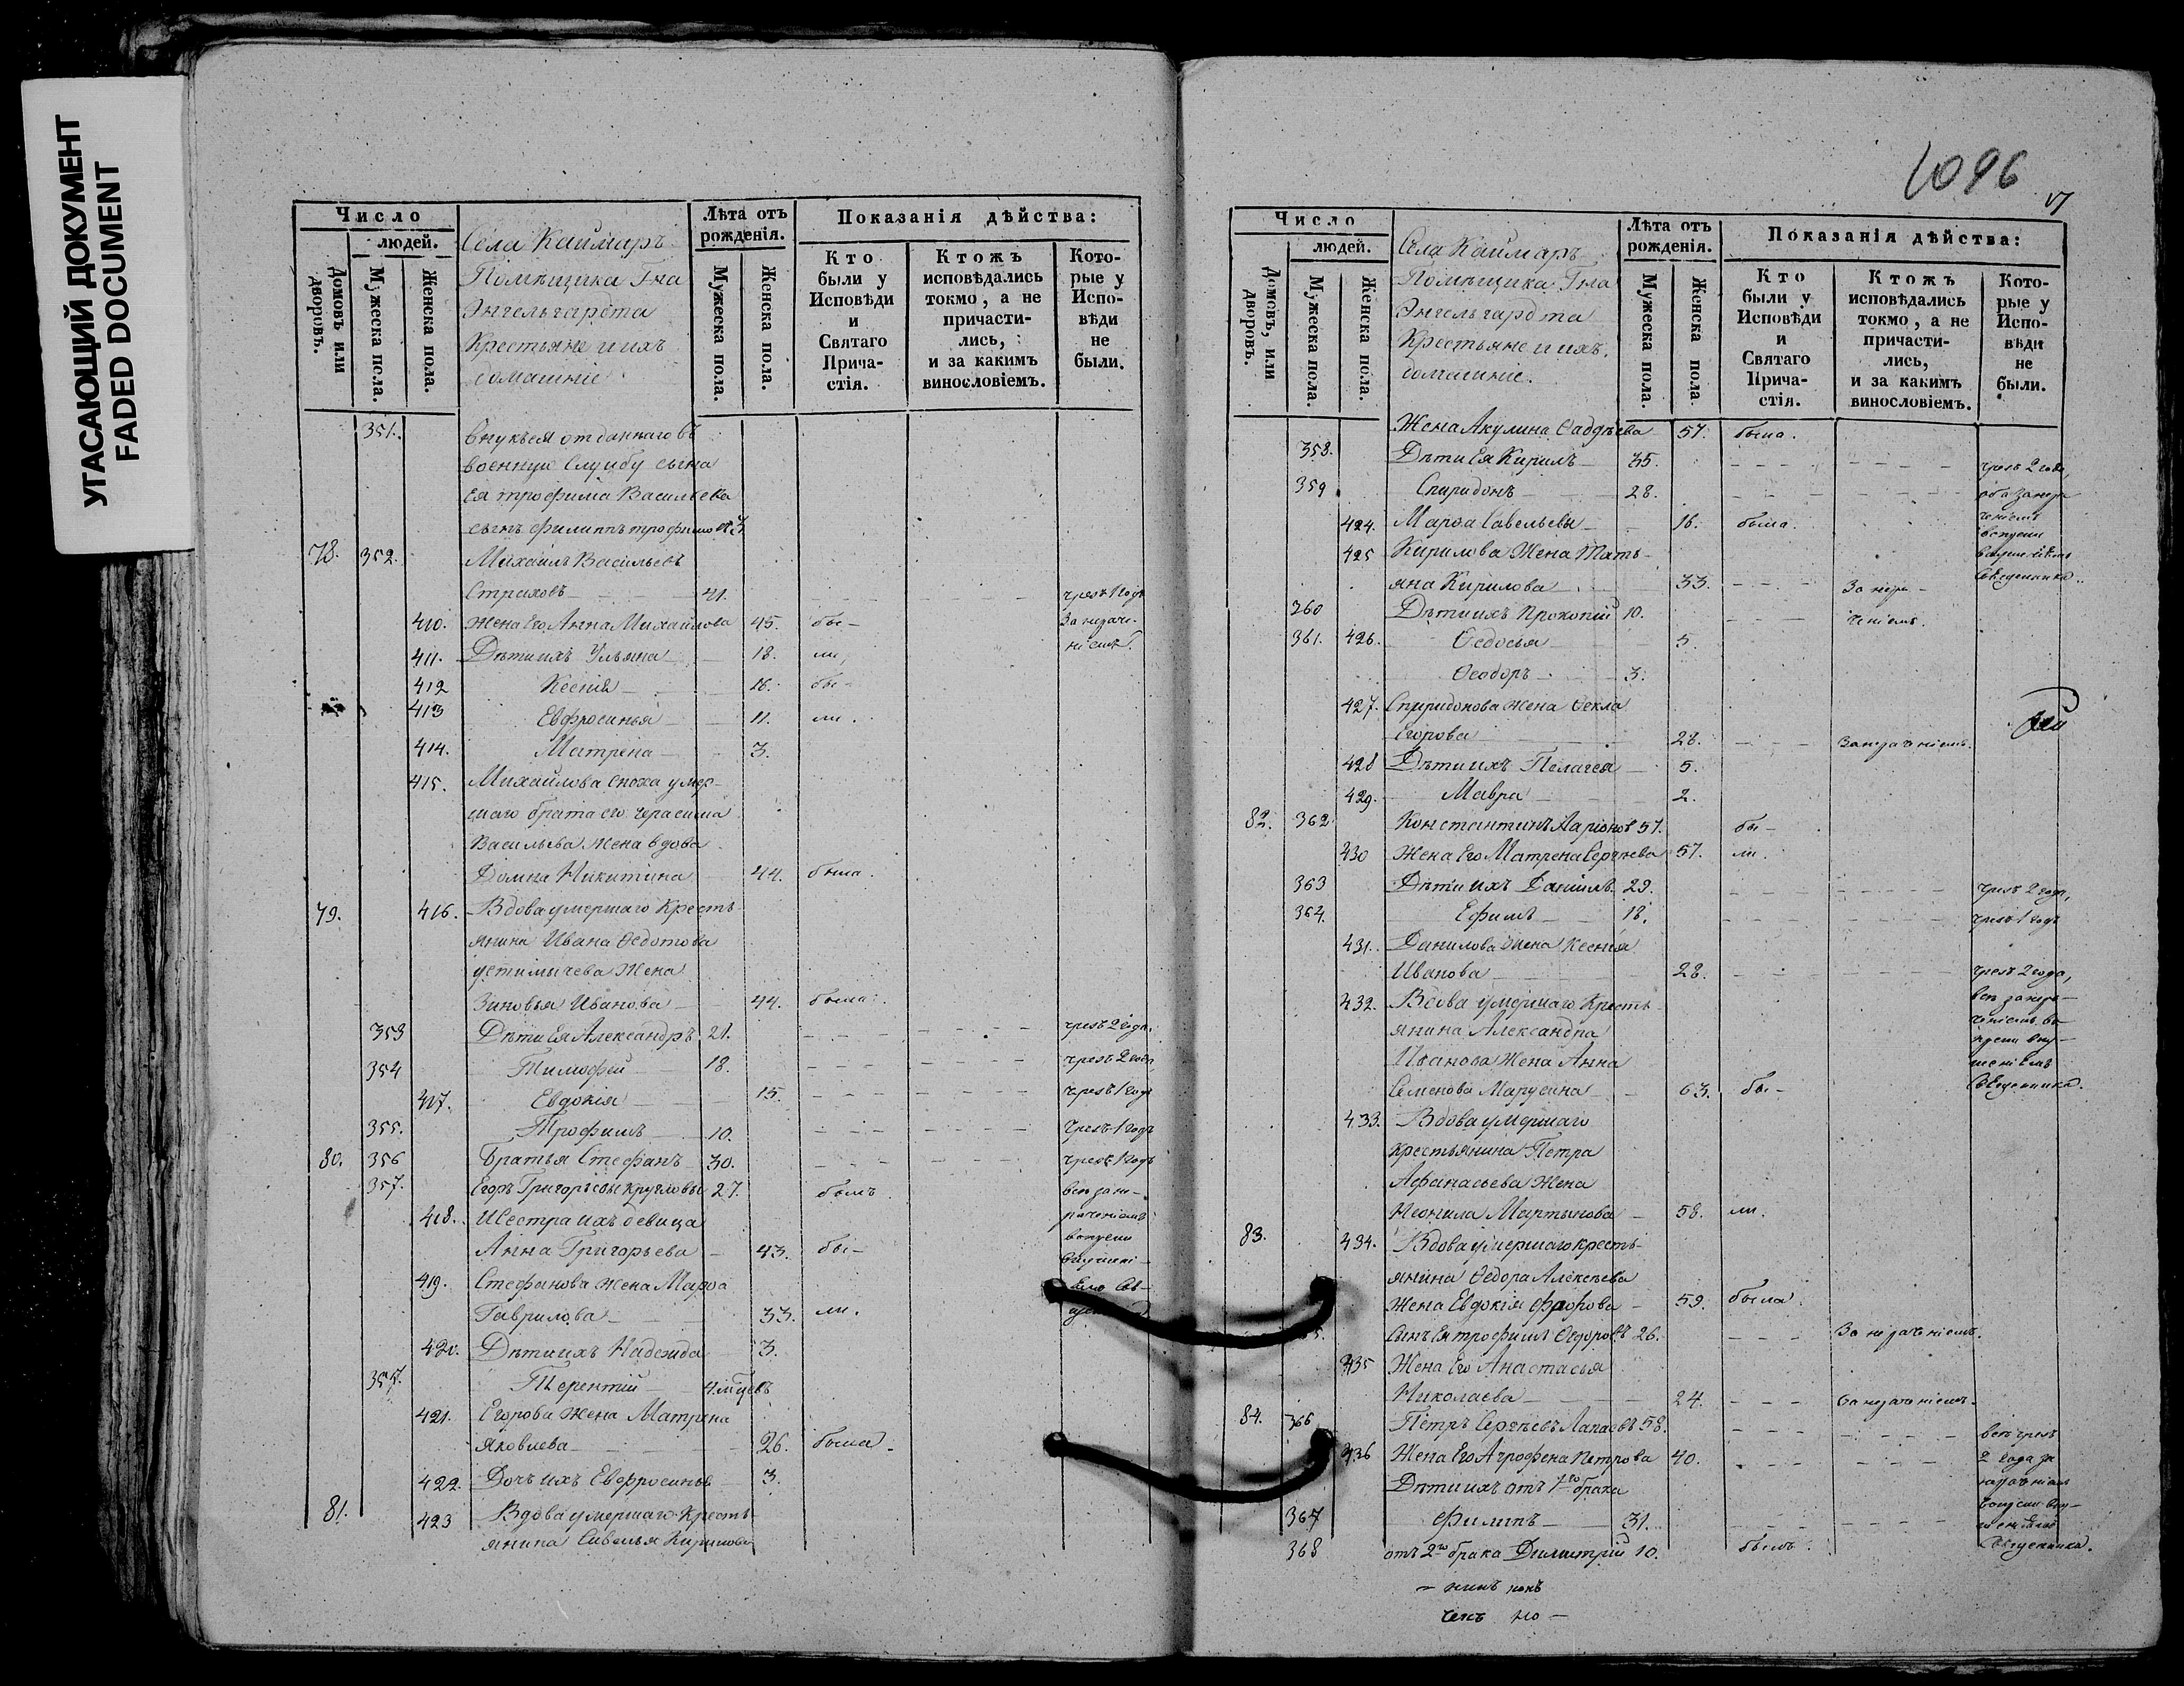 УГАСАЮЩИЙ ДОКУМЕНТ
FADED DOCUMENT
Число
людей.
Домовъ или дворовъ.
Мужеска пола.
Женска пола.
Села Каймаръ
Помѣщика Гна
Энгельгардта
Крестьяне и ихъ
домашніе
Лѣта отъ рожденія.
Мужеска пола.
Женска пола.
Показанія дѣйства:
Кто были у Исповѣди и Святаго Прича-стія.
Ктожъ исповѣдались токмо, а не причасти-лись, и за какимъ винословіемъ.
Кото-рые у Испо-вѣди не были.
351. внукъ ея отданнаго въ
военную службу сына
ея трофима Васильева
сынъ филиппъ трофимовъ 3
78. 352. Михаилъ Васильевъ
Страховъ 41. чрезъ 1 годъ
410. жена Его Анна Михайлова 45. бы- За нераче-
411. Дѣти ихъ Ульяна 18. ли, ніемъ.
412 Ксенія 16. бы-
413 Евфросинья 11. ли.
414. Матрена 3.
415. Михайлова сноха умер-
шаго брата его герасима
Васильева жена вдова
Домна Никитина 44. была.
79. 416. Вдова умершаго Кресть-
янина Ивана Ѳедотова
устимычева Жена
Зиновья Иванова 44. была.
353 Дѣти Ея Александръ 21. чрезъ 2 года.
354 Тимофей 18. чрезъ 2 года,
417. Евдокія 15. чрезъ 1 годъ
355. Трофимъ 10. Чрезъ 1 годъ
80. 356 Братья Стефанъ 30. чрезъ 1 годъ
357. Егоръ Григорьевы Кругловы 27. былъ. всѣ за не-
418. И Сестра ихъ девица раченіемъ
Анна Григорьева 43. бы- вопреки
419. Стефанова жена Марѳа
Гаврилова 33. ли.
420. Дѣти ихъ Надежда 3.
357. Терентій 4. мѣцевъ
421. Егорова Жена Матрена
Яковлева 26. была.
422. Дочь ихъ Евфросинья 3.
81. 423 Вдова умершаго Кресть-
янина Савелья Кирилова
1096
Число
людей.
Домовъ, или дворовъ.
Мужеска пола.
Женска пола.
Села Каймаръ
Помѣщика Гна
Энгельгардта
Крестьяне и ихъ
домашніе.
Лѣта отъ рожденія.
Мужеска пола.
Женска пола
Показанія дѣйства:
Кто были у Исповѣди и Святаго Прича-стія.
Ктожъ исповѣдались токмо, а не причасти-лись, и за какимъ винословіемъ.
Кото-рые у Испо-вѣди не были.
Жена Акулина Ѳаддѣева 57. была.
358. Дѣти Ея Кирилъ 35. чрезъ 2 года,
359 Спиридонъ 28. оба за нера-
424. Марѳа Савельевы 16. была. ченіемъ
425 Кирилова Жена Тать-
яна Кирилова 33. За нера- Священника.
360 Дѣти ихъ Прокопій 10. ченіемъ.
361. 426. Ѳедосья 5.
Ѳеодоръ 3.
427. Спиридонова жена Ѳекла
Егорова 28. За нераченіемъ.
428 Дѣти ихъ Пелагея 5.
429. Мавра 2.
82. 362 Константинъ Ларіоновъ 57. бы-
430 Жена Его Матрена Сергѣева 57. ли.
363 Дѣти ихъ Данилъ 29. чрезъ 2 года,
364. Ефимъ 18. чрезъ 1 годъ
431. Данилова жена Ксенія
Иванова 28. чрезъ 2 года,
432. Вдова умершаго Кресть- всѣ за нера-
янина Александра ченіемъ во-
Иванова Жена Анна преки вну-
Семенова Марусина 63. бы- Священника.
433. Вдова умершаго
крестьянина Петра
Афанасьева Жена
Неонила Мартынова 58. ли.
83. 434. Вдова умершаго кресть-
янина Ѳедора Алексѣева
Жена Евдокія Фролова 59. была
Сынъ Ея трофимъ Ѳедоровъ 26. За нераченіемъ.
435 Жена Его Анастасья
Николаева 24. За нераченіемъ.
84. 366 Петръ Сергѣевъ Лапаевъ 58. всѣ чрезъ
436 Жена Его Агрофена Петрова 40. 2 года за
Дѣти ихъ отъ 1го брака нераченіемъ
367 Филипъ 31. вопреки вну-
368 отъ 2го брака Димитрій 10. былъ. Священника.